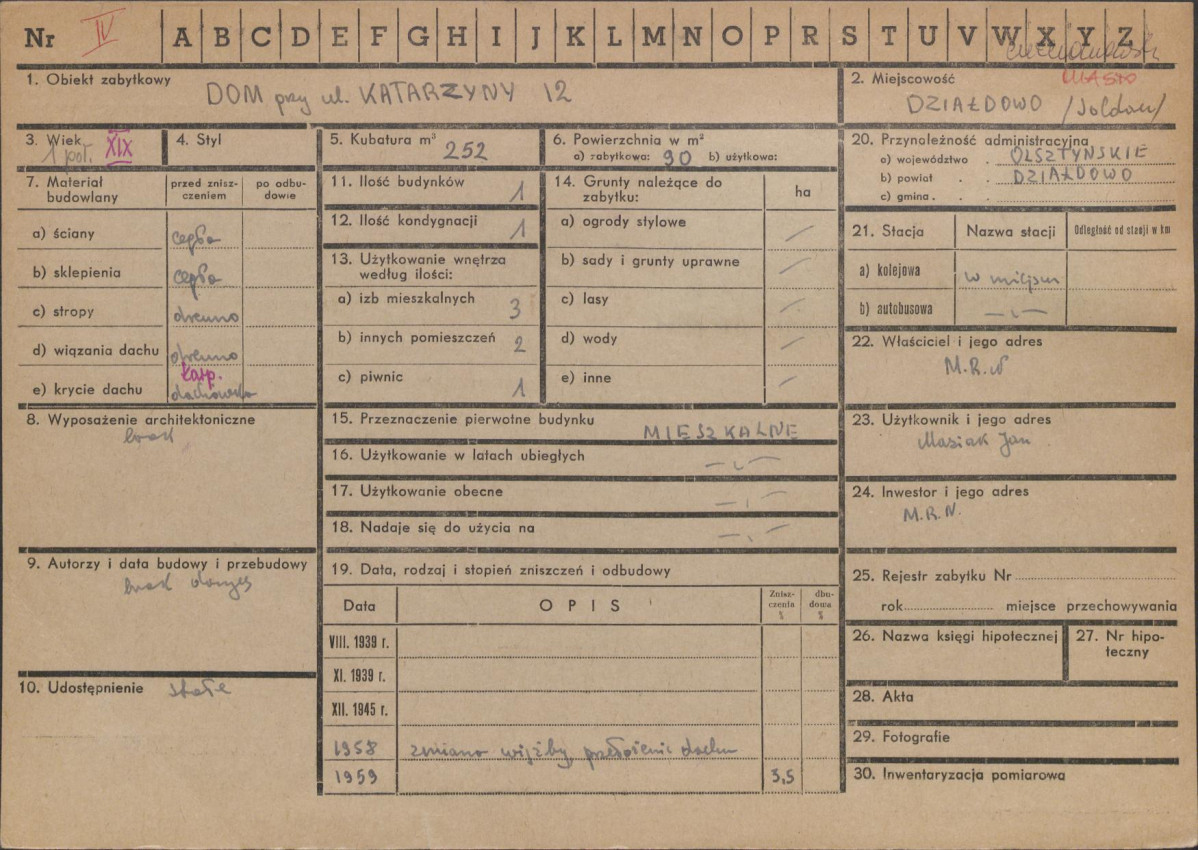 Nr IV A B C D E F G H I J K L M N O P R S T U V W X Y Z
1. Obiekt zabytkowy DOM przy ul. KATARZYNY 12
2. Miejscowość MIASTO
DZIAŁDOWO /Soldau/
3. Wiek 1 poł. XIX
4. Styl
5. Kubatura m³ 252
6. Powierzchnia w m²
a) zabytkowa: 90 b) użytkowa:
7. Materiał budowlany
przed znisz-
czeniem
po odbu-
dowie
a) ściany cegła
b) sklepienia cegła
c) stropy drewno
d) wiązania dachu drewno
e) krycie dachu karp. dachówka
8. Wyposażenie architektoniczne
brak
9. Autorzy i data budowy i przebudowy
brak danych
10. Udostępnienie stałe
11. Ilość budynków 1
12. Ilość kondygnacji 1
13. Użytkowanie wnętrza
według ilości:
a) izb mieszkalnych 3
b) innych pomieszczeń 2
c) piwnic 1
14. Grunty należące do
zabytku:
ha
a) ogrody stylowe —
b) sady i grunty uprawne —
c) lasy —
d) wody —
e) inne —
15. Przeznaczenie pierwotne budynku MIESZKALNE
16. Użytkowanie w latach ubiegłych -„-
17. Użytkowanie obecne -„-
18. Nadaje się do użycia na -„-
19. Data, rodzaj i stopień zniszczeń i odbudowy
Data OPIS
Znisz-
czenia
%
dbu-
dowa
%
VIII. 1939 r.
XI. 1939 r.
XII. 1945 r.
1958 zmiana więźby, przełożenie dachu
1959 3,5
20. Przynależność administracyjna
a) województwo OLSZTYŃSKIE
b) powiat DZIAŁDOWO
c) gmina
21. Stacja Nazwa stacji Odległość od stacji w km
a) kolejowa w miejscu
b) autobusowa -„-
22. Właściciel i jego adres
M.R.N
23. Użytkownik i jego adres
Masiak Jan
24. Inwestor i jego adres
M.R.N.
25. Rejestr zabytku Nr
rok miejsce przechowywania
26. Nazwa księgi hipotecznej
27. Nr hipo-
teczny
28. Akta
29. Fotografie
30. Inwentaryzacja pomiarowa